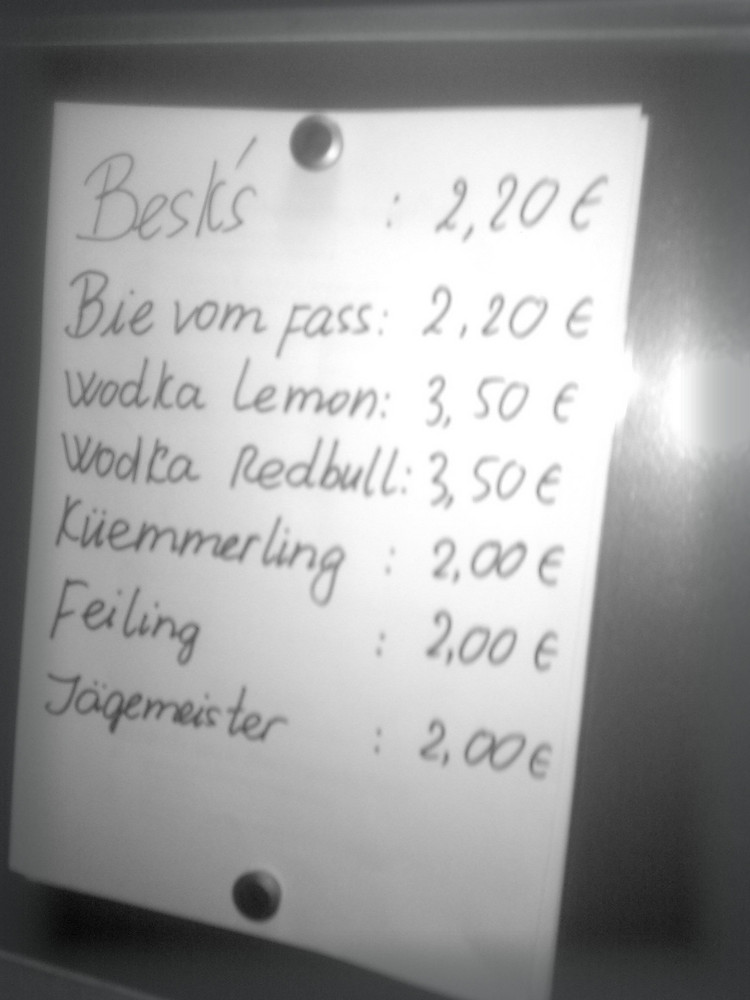 Besk's : 2,20 €
Bie vom Fass: 2,20 €
Wodka Lemon: 3,50 €
Wodka Redbull: 3,50 €
Küemmerling : 2,00 €
Feiling : 2,00 €
Jägemeister : 2,00 €